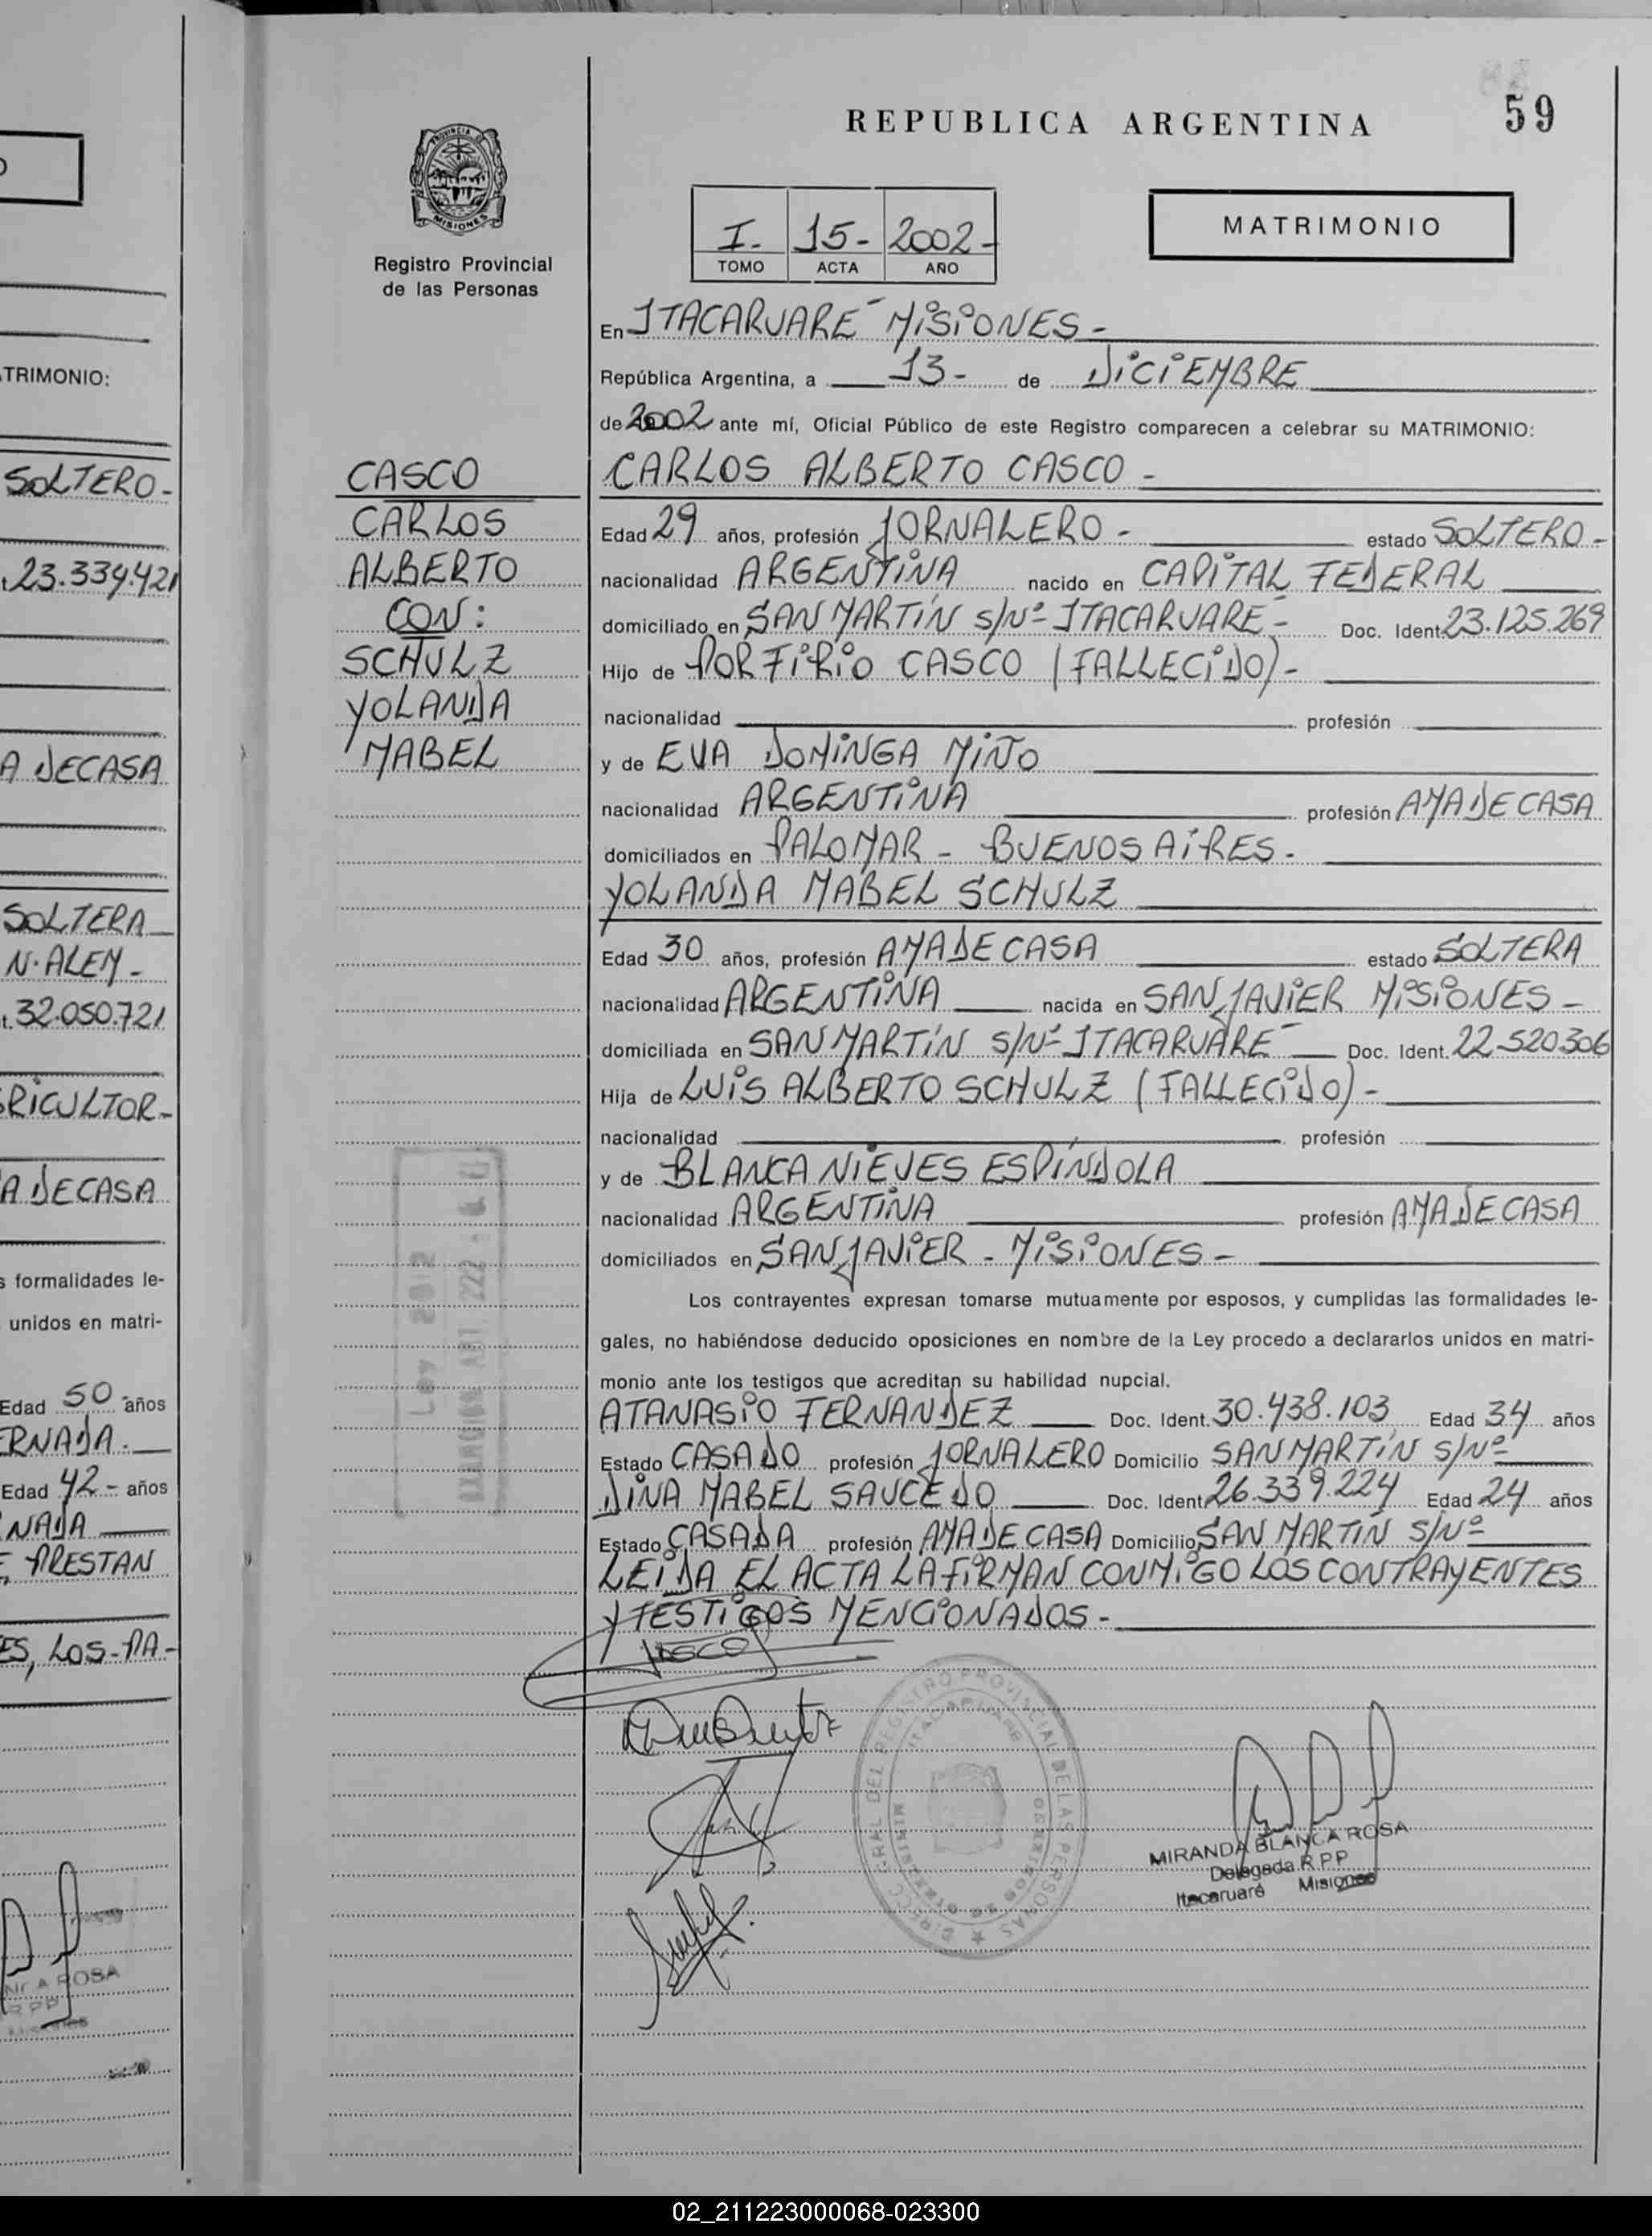 O
TRIMONIO:
SOLTERO-
23.339.421
A DE CASA
SOLTERA
N. ALEM-
32.050.721
RICULTOR-
A DE CASA
s formalidades le-
unidos en matri-
Edad 50 años
ERNADA.
Edad 42- años
NADA
PRESTAN
ES, LOS-PA-
ROSA
59
REPUBLICA ARGENTINA
PROVINCIA DE MISIONES
Registro Provincial
de las Personas
I.- 15- 2002-
TOMO ACTA AÑO
MATRIMONIO
En ITACARUARE MISIONES-
República Argentina, a 13- de DICIEMBRE
de 2002 ante mí, Oficial Público de este Registro comparecen a celebrar su MATRIMONIO:
CASCO
CARLOS
ALBERTO
CON:
SCHULZ
YOLANDA
MABEL
CARLOS ALBERTO CASCO-
Edad 29 años, profesión JORNALERO- estado SOLTERO-
nacionalidad ARGENTINA nacido en CAPITAL FEDERAL
domiciliado en SAN MARTÍN S/Nº ITACARUARE- Doc. Ident. 23.125.269
Hijo de PORFIRIO CASCO (FALLECIDO)-
nacionalidad profesión
y de EVA DOMINGA MIÑO
nacionalidad ARGENTINA profesión AMA DE CASA
domiciliados en PALOMAR - BUENOS AIRES.
YOLANDA MABEL SCHULZ
Edad 30 años, profesión AMA DE CASA estado SOLTERA
nacionalidad ARGENTINA nacida en SAN JAVIER MISIONES-
domiciliada en SAN MARTÍN S/Nº ITACARUARE Doc. Ident. 22.520.306
Hija de LUIS ALBERTO SCHULZ (FALLECIDO)-
nacionalidad profesión
y de BLANCA NIEVES ESPÍNDOLA
nacionalidad ARGENTINA profesión AMA DE CASA
domiciliados en SAN JAVIER - MISIONES-
Los contrayentes expresan tomarse mutuamente por esposos, y cumplidas las formalidades le-
gales, no habiéndose deducido oposiciones en nombre de la Ley procedo a declararlos unidos en matri-
monio ante los testigos que acreditan su habilidad nupcial.
ATANASIO FERNANDEZ Doc. Ident. 30.438.103 Edad 34 años
Estado CASADO profesión JORNALERO Domicilio SAN MARTÍN S/Nº
DINA MABEL SAUCEDO Doc. Ident. 26.339.224 Edad 24 años
Estado CASADA profesión AMA DE CASA Domicilio SAN MARTÍN S/Nº
LEIDA EL ACTA LA FIRMAN CONMIGO LOS CONTRAYENTES
Y TESTIGOS MENCIONADOS-
CASCO
REGISTRO PROVINCIAL DE LAS PERSONAS
MIRANDA BLANCA ROSA
Delegada R P P
Itacaruaré Misiones
02_211223000068-023300